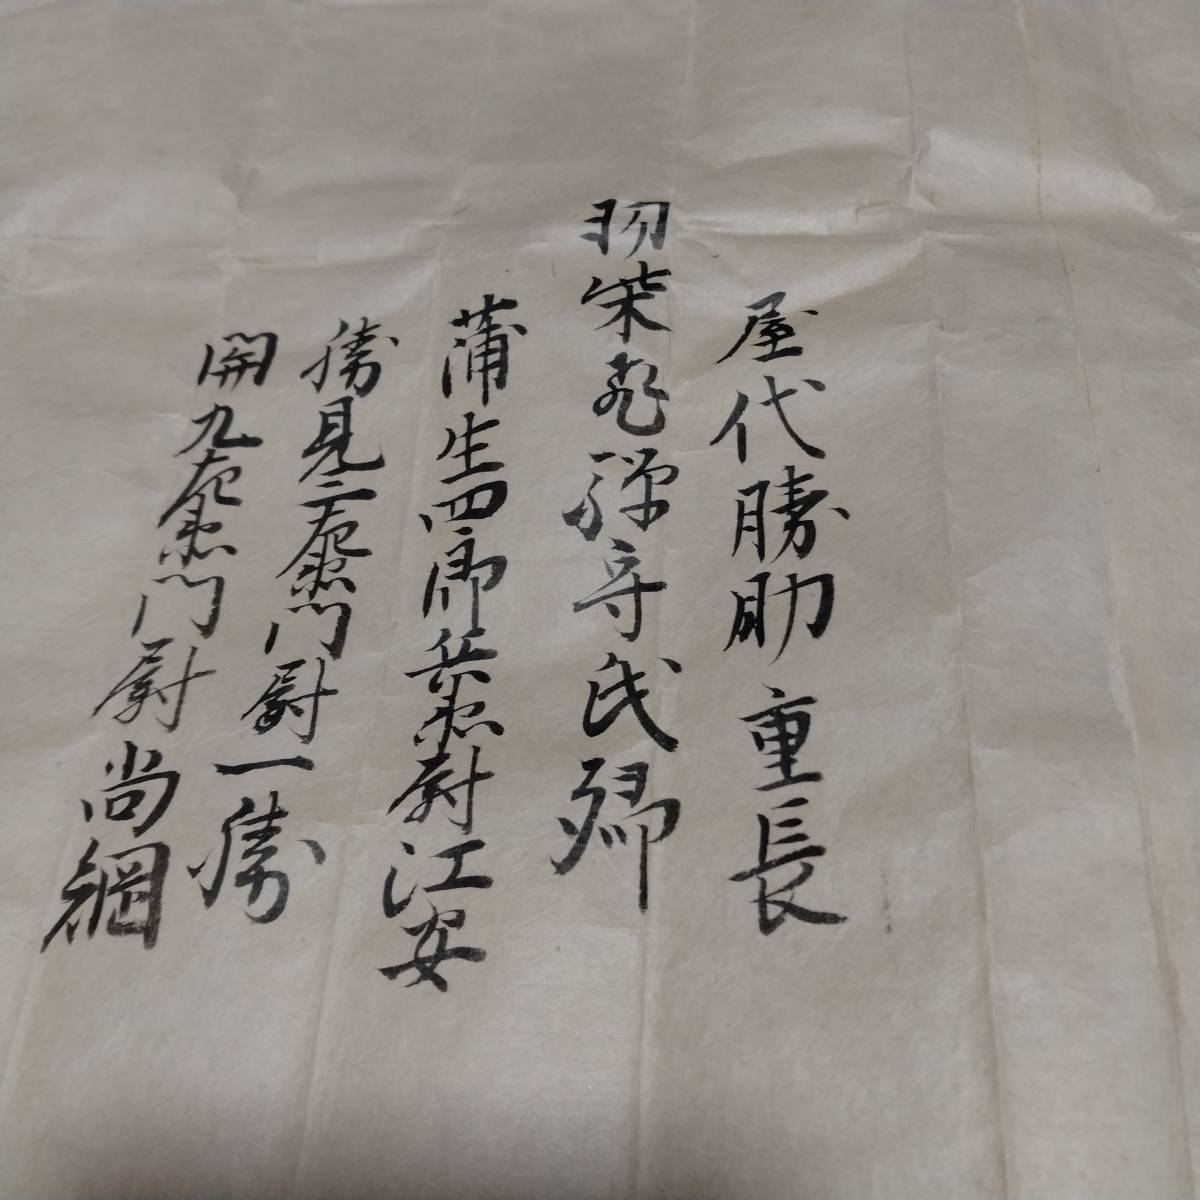 屋代勝助 重長
羽柴飛騨守氏郷
蒲生四郎兵衛尉江安
勝見二右衛門尉一勝
開九右衛門尉尚綱